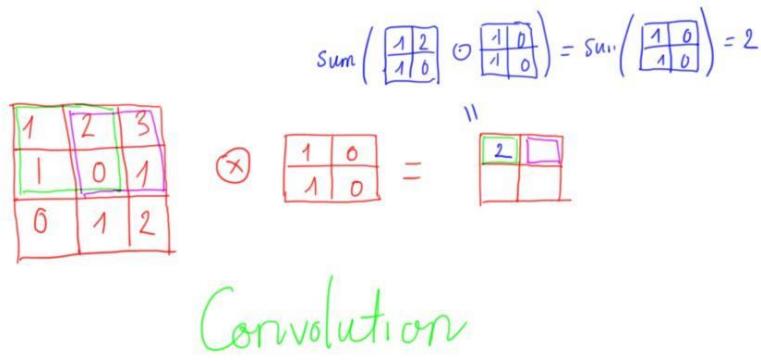 sum( 1 2 ⊙ 1 0 ) = su ( 1 0 ) = 2
1 0 1 0 1 0
=
1 2 3
1 0 1
0 1 2
⊗
1 0
1 0
=
2
Convolution